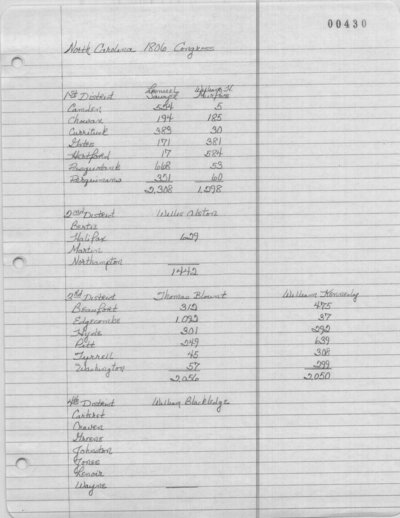 00430
North Carolina 1806 Congress
1st District Lemuel Sawyer William H. Murfree
Camden 554 5
Chowan 194 185
Currituck 383 30
Gates 171 381
Hertford 17 584
Pasquotank 668 53
Perquimans 321 60
2,308 1,298
2nd District Willis Alston
Bertie
Halifax 629
Martin
Northampton
1442
3rd District Thomas Blount William Kennedy
Beaufort 312 475
Edgecombe 1,092 37
Hyde 301 292
Pitt 249 639
Tyrrell 45 308
Washington 57 299
2,056 2,050
4th District William Blackledge
Carteret
Craven
Greene
Johnston
Jones
Lenoir
Wayne